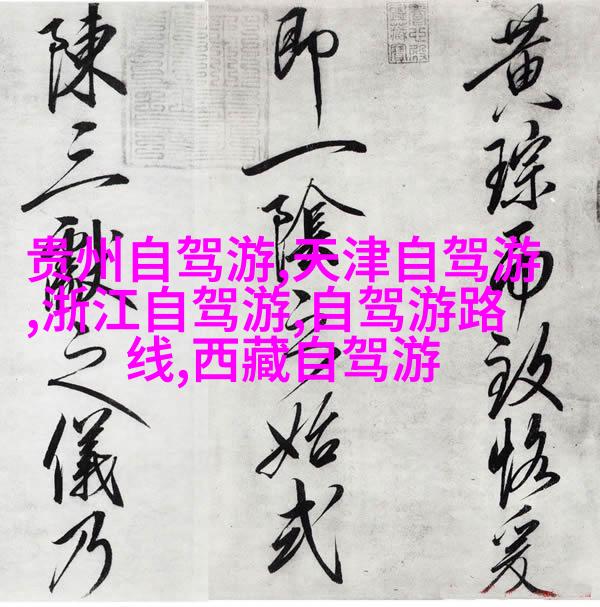 黄琮而致恪爰
即一陰之始式
陳三獻之儀乃
贵州自驾游,天津自驾游
,浙江自驾游,自驾游路
线,西藏自驾游